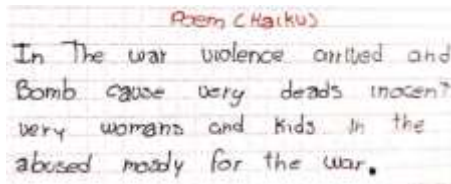 Poem (Haiku)
In The war violence arrived and
Bomb cause very deads inocent
very womans and Kids in the
abused moody for the war.